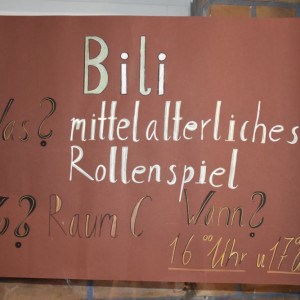 Bili
Was? mittelalterliches
Rollenspiel
Raum C Wann?
16 00 Uhr u 17